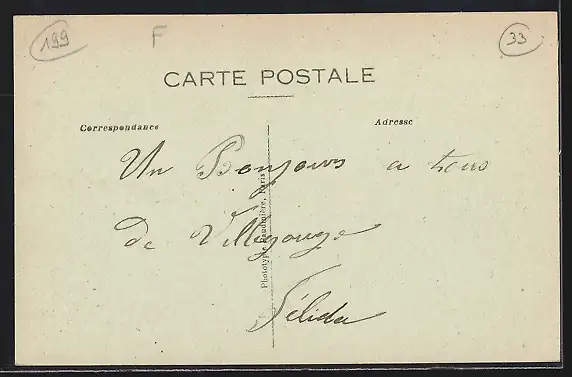 199
F
33
CARTE POSTALE
Correspondance
Adresse
Un Bonjours a tous
de Villegouge
Félida
Phototypie Baudinière, Paris